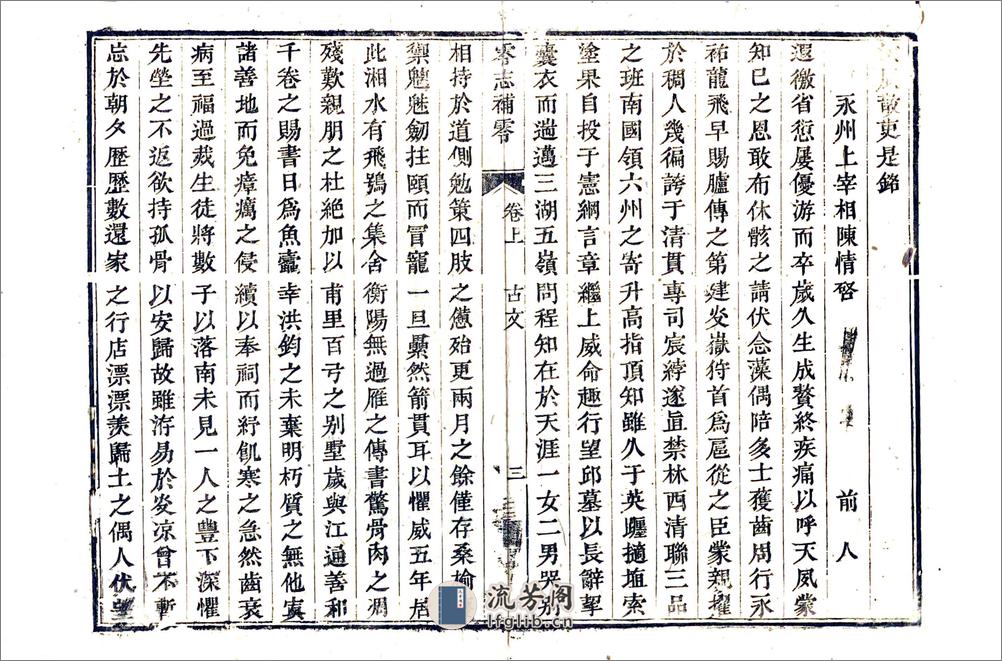 吏是銘
永州上宰相陳情啓 前人
還徼省愆屡優游而卒歲久生成贅終疾痛以呼天夙蒙
知已之恩敢布休骸之請伏念藻偶陪多士獲齒周行永
祐龍飛早賜臚傳之第建炎嶽狩首爲扈從之臣蒙親擢
於稠人幾徧誇于清貫專司宸綍遂直禁林西清聯三品
之班南國領六州之寄升高指頂知雖久于英躔擿埴索
塗果自投于憲綱言章繼上威命趣行望邱墓以長辭挈
囊衣而遄邁三湖五嶺問程知在於天涯一女二男哭别
零志補零 卷上 古文 三
相持於道側勉策四肢之憊殆更兩月之餘僅存桑榆
禦魑魅劒拄頤而冐寵一旦纍然箭貫耳以懼威五年居
此湘水有飛鴞之集舍衡陽無過雁之傳書驚骨肉之凋
殘歎親朋之杜絶加以甫里百弓之别墅歲與江通善和
千卷之賜書日爲魚蠹幸洪鈞之未棄明朽質之無他寘
諸善地而免瘴癘之侵續以奉祠而紓飢寒之急然齒衰
病至福過烖生徒將數子以落南未見一人之豐下深懼
先塋之不返欲持孤骨以安歸故雖游易於炎凉曾不暫
忘於朝夕歷歷數還家之行店漂漂羨歸土之偶人伏望
流芳阁
lfglib.cn